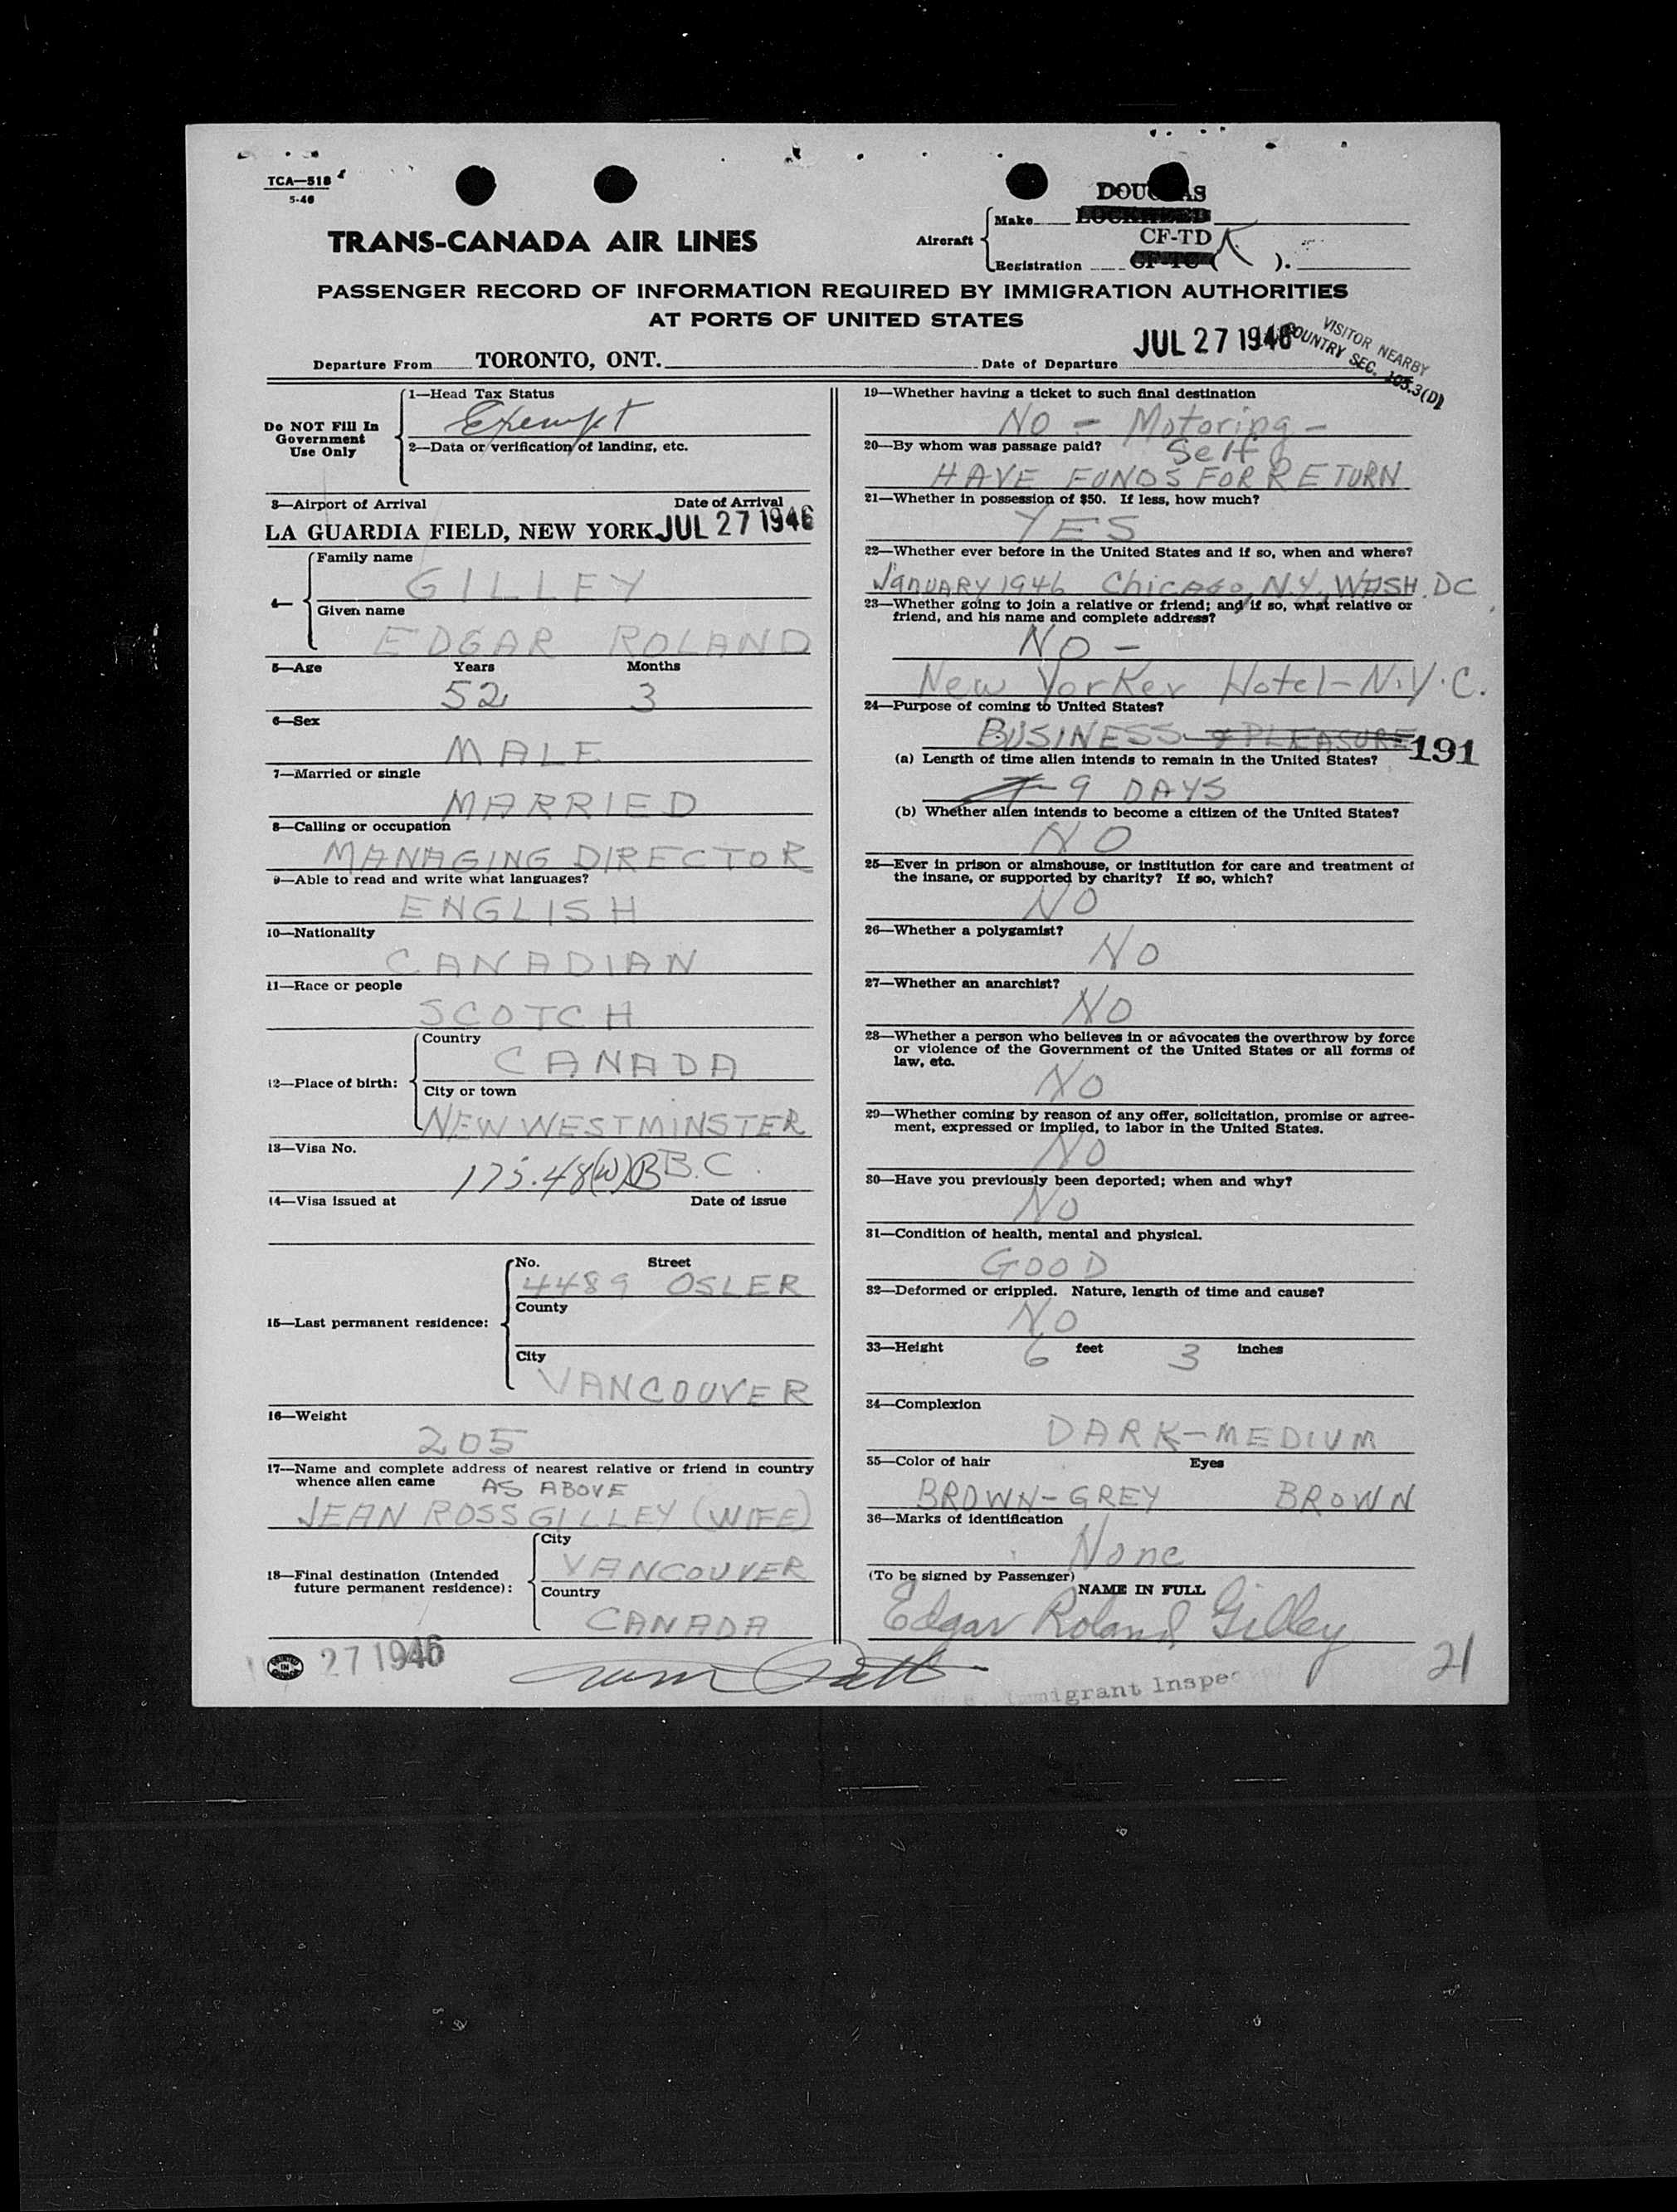 TCA—518
5-46
TRANS-CANADA AIR LINES
Aircraft
Make DOUGLAS
LOCKHEED
CF-TD K
Registration CF-TC ( ).
PASSENGER RECORD OF INFORMATION REQUIRED BY IMMIGRATION AUTHORITIES
AT PORTS OF UNITED STATES
VISITOR NEARBY
COUNTRY SEC. 105.3(D)
Departure From TORONTO, ONT. Date of Departure JUL 27 1946
Do NOT Fill In
Government
Use Only
1—Head Tax Status
Exempt
2—Data or verification of landing, etc.
3—Airport of Arrival Date of Arrival
LA GUARDIA FIELD, NEW YORK JUL 27 1946
4— Family name
GILLEY
Given name
EDGAR ROLAND
5—Age Years Months
52 3
6—Sex
MALE
7—Married or single
MARRIED
8—Calling or occupation
MANAGING DIRECTOR
9—Able to read and write what languages?
ENGLISH
10—Nationality
CANADIAN
11—Race or people
SCOTCH
12—Place of birth:
Country
CANADA
City or town
NEW WESTMINSTER
13—Visa No.
175.48(W)B B.C.
14—Visa issued at Date of issue
15—Last permanent residence:
No. Street
4489 OSLER
County
City
VANCOUVER
16—Weight
205
17—Name and complete address of nearest relative or friend in country
whence alien came AS ABOVE
JEAN ROSS GILLEY (WIFE)
18—Final destination (Intended
future permanent residence):
City
VANCOUVER
Country
CANADA
PRINTED IN CANADA
27 1946
19—Whether having a ticket to such final destination
NO - Motoring -
20—By whom was passage paid? Self
HAVE FUNDS FOR RETURN
21—Whether in possession of $50. If less, how much?
YES
22—Whether ever before in the United States and if so, when and where?
JANUARY 1946 Chicago, N.Y., WASH. DC
23—Whether going to join a relative or friend; and if so, what relative or
friend, and his name and complete address?
NO -
New Yorker Hotel - N.Y.C.
24—Purpose of coming to United States?
BUSINESS & PLEASURE 191
(a) Length of time alien intends to remain in the United States?
9 DAYS
(b) Whether alien intends to become a citizen of the United States?
NO
25—Ever in prison or almshouse, or institution for care and treatment of
the insane, or supported by charity? If so, which?
NO
26—Whether a polygamist?
NO
27—Whether an anarchist?
NO
28—Whether a person who believes in or advocates the overthrow by force
or violence of the Government of the United States or all forms of
law, etc.
NO
29—Whether coming by reason of any offer, solicitation, promise or agree-
ment, expressed or implied, to labor in the United States.
NO
30—Have you previously been deported; when and why?
NO
31—Condition of health, mental and physical.
GOOD
32—Deformed or crippled. Nature, length of time and cause?
NO
33—Height 6 feet 3 inches
34—Complexion
DARK-MEDIUM
35—Color of hair Eyes
BROWN-GREY BROWN
36—Marks of identification
None
(To be signed by Passenger)
NAME IN FULL
Edgar Roland Gilley
Immigrant Inspe
21